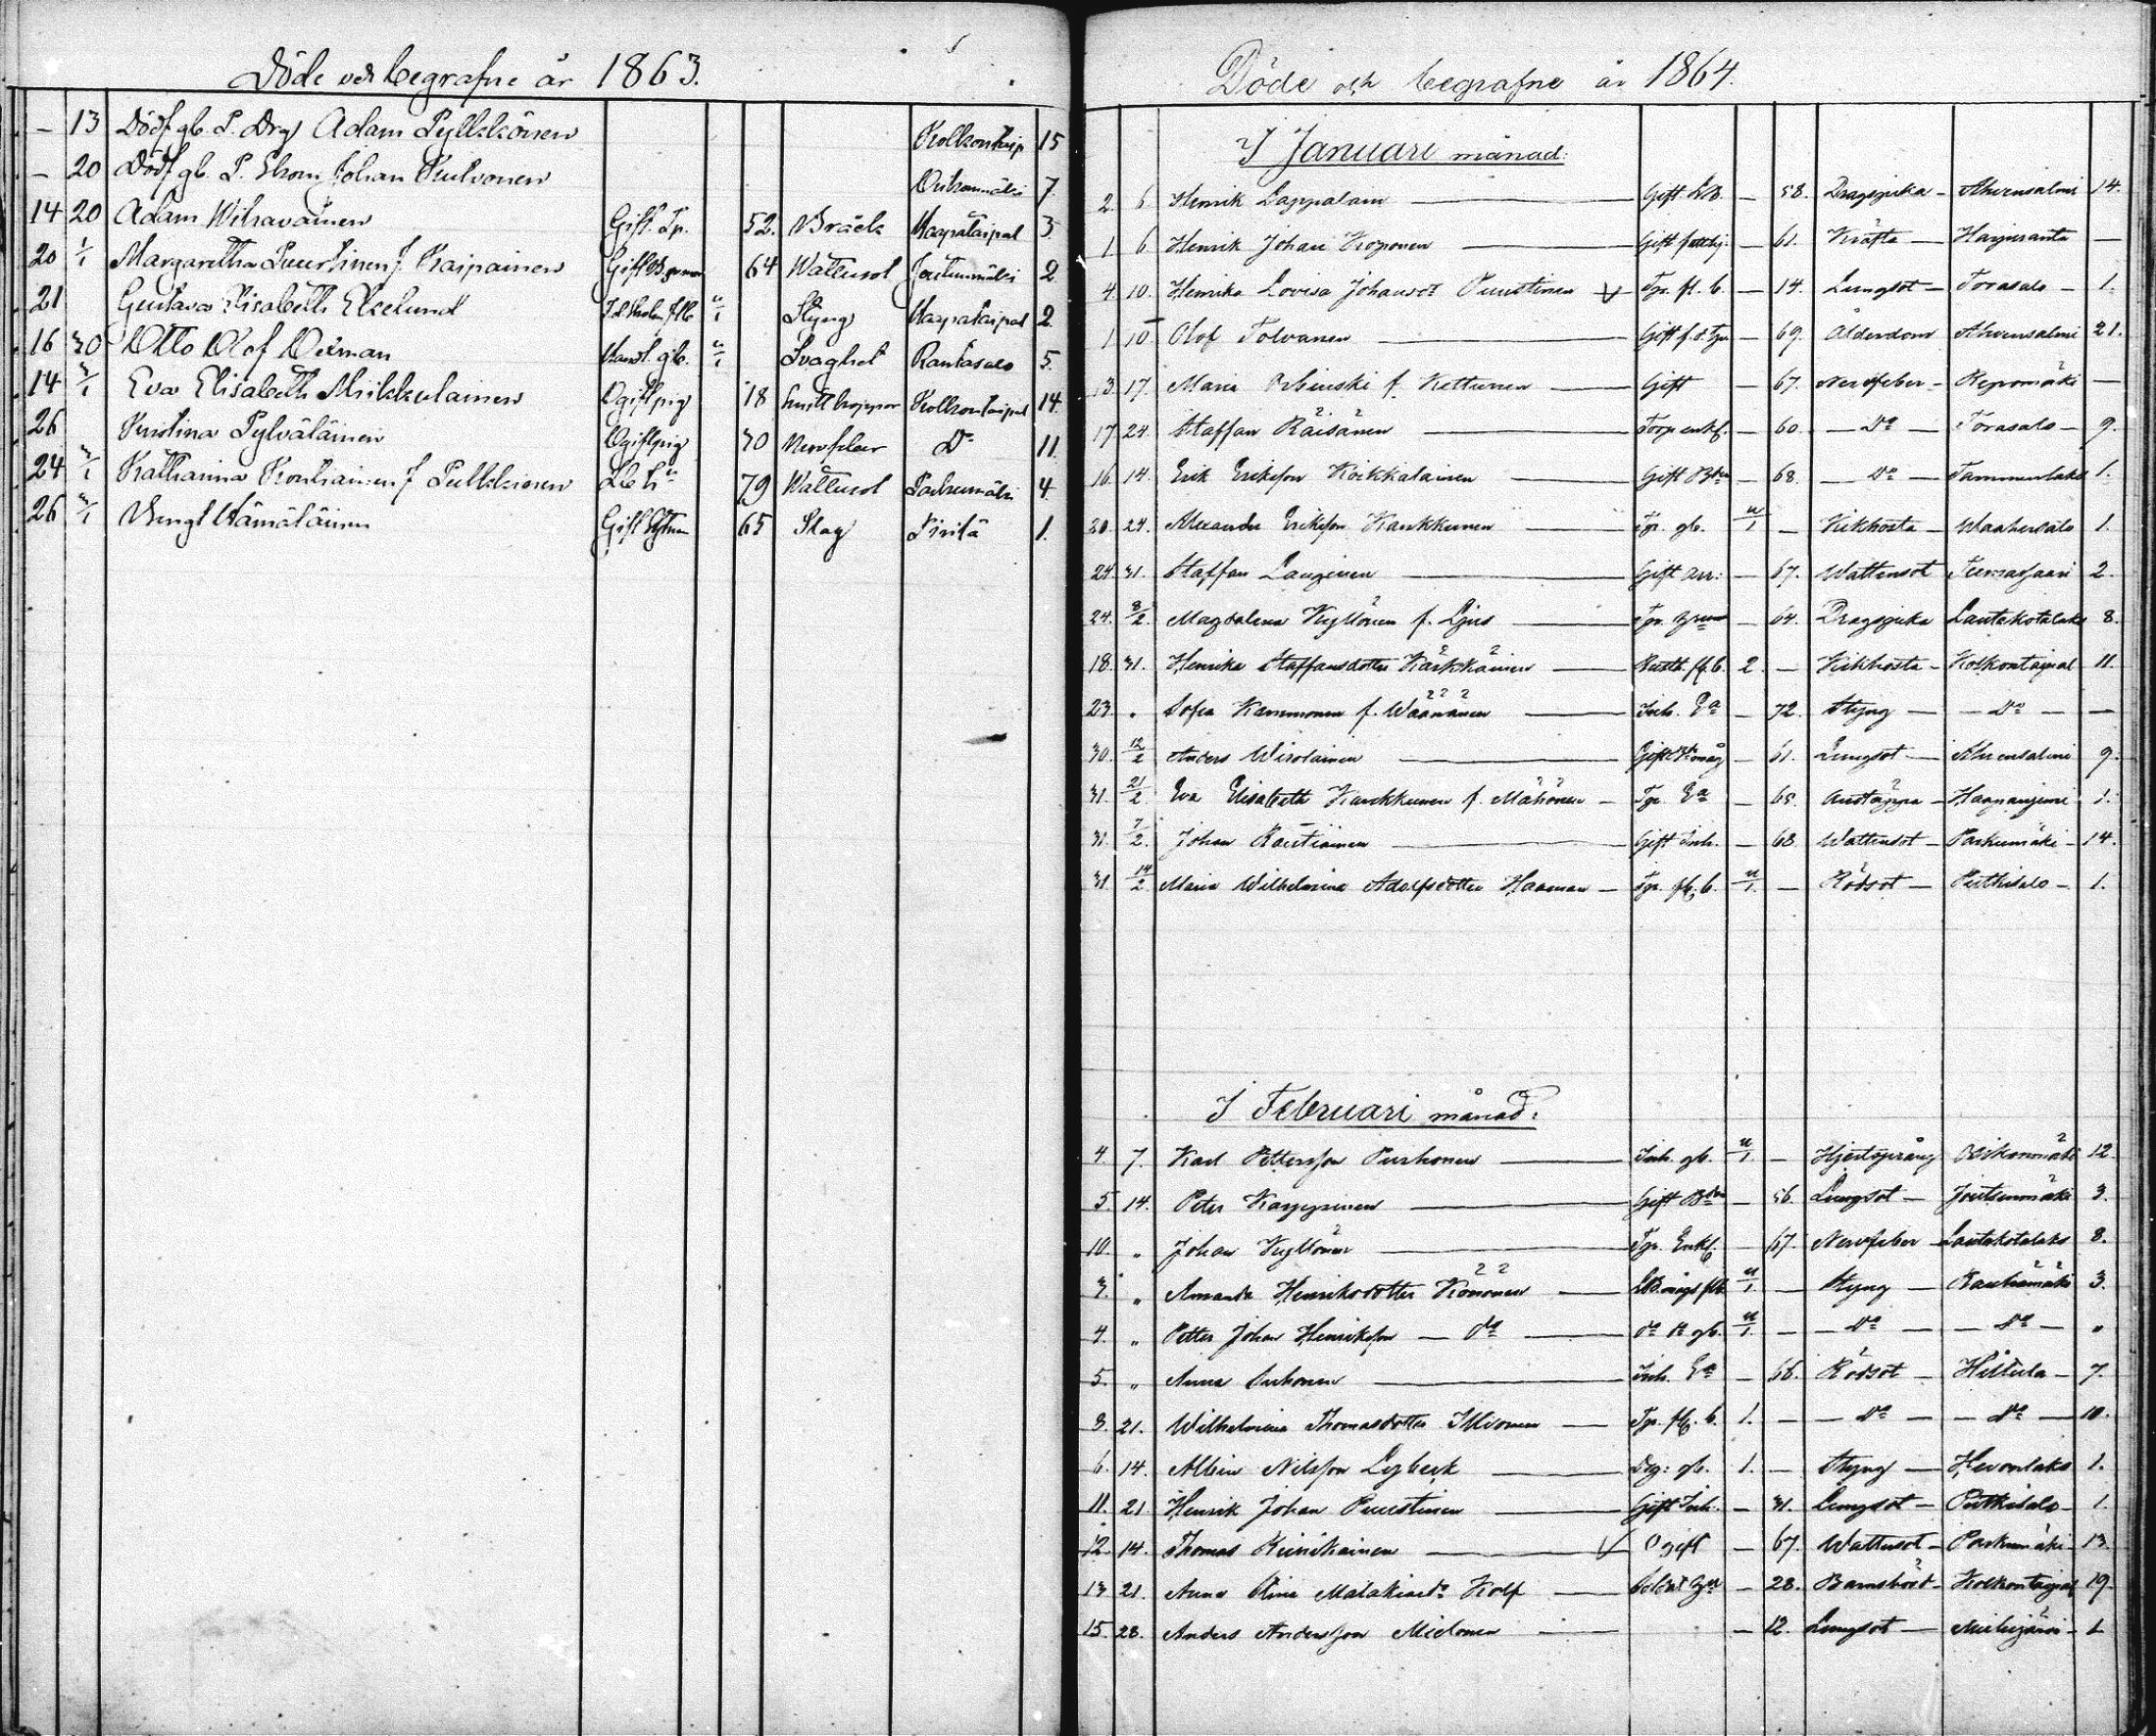 Döde och begrafne år 1863.
– 13 Dödf gb. P. Drg Adam Pylkkönen Kolkontaip 15
– 20 Dödf gb. P. Johan 7.
14 20 Adam Wihavainen Gift. Tp. 52. Bråck Haapataipal 3
20 1/1 Margaretha Puustinen f. Kaipainen Gift 64 Wattusot Joutsenmäki 2
21 Gustava Elisabeth Ekelund u/1 Styng Haapataipal 2.
16 30 Otto Olof Dexman gb. u/1 Svaghet Rantasalo 5.
14 3/1 Eva Elisabeth Mikkulainen Ogift pig 18 Smittkoppor Kolkontaipal 14.
26 Kristina Pylväläinen Ogift pig 70 Nervfeber Do 11.
24 3/1 Katharina Kontiainen f Pulkkinen 79 Wattusot Parkumäki 4.
26 3/1 Bengt Hämäläinen Gift 65 Slag Pirilä 1.
Döde och begrafne år 1864.
I Januari månad:
2. 6 Henrik Lappalain — Gift – 58. Dragsjuka – Ahvensalmi 14.
1 6 Henrik Johan Koponen — Gift – 61. Kräfta – Harjuranta –
4. 10. Henrika Lovisa Johansdr Puustinen Tpr. fl. b. – 14. Lungsot – Torasalo – 1.
1 10 Olof Tolvanen — Gift – 69. Ålderdom Ahvensalmi 21.
3 17. Maria Orbinski f. Kettunen — Gift – 67. Nervfeber – Reponmäki –
17 24. Staffan Räisänen — Torp enkl. – 60. – Do – Torasalo – 9.
16. 14. Erik Eriksson Koikkalainen — Gift – 68. – Do – Tammenlaks 1.
20. 24. Alexander Eriksson Kaukkunen — Tpr. gb. u/1 – Kikhosta – Waahersalo 1.
24. 31. Staffan Laupinen — Gift arr: – 67. Wattensot 2.
24. 8/2. Magdalena Kyllönen f. Ljus — Tpr. – 64. Dragsjuka Lautakotalaks 8.
18. 31. Henrika Staffansdotter Kärkkäinen — fl. b. 2. – Kikhosta – Kolkontaipal 11.
23. „ Sofia Kammonen f. Väänänen — Inh. Ea – 72. Styng – – Do – –
30. 12/2 Anders Wirolainen — Gift – 61. Lungsot – Ahvensalmi 9.
31. 21/2. Eva Elisabeth Kaukkunen f. Mähönen – Tpr. Ea – 65. Andtäppa – Haapaniemi 1.
31. 7/2. Johan Rautiainen — Gift Inh. – 68 Wattensot – Parkumäki – 14.
31. 14/2 Maria Wilhelmina Adolfsdotter Haaman – Tpr. fl. b. u/1. – Rödsot – Putkisalo – 1.
I Februari månad:
4. 7. Karl Pettersson Purhonen — Inh. gb. u/1. – Hjertsprång Oikonmäki 12.
5. 14. Peter Kauppinen — Gift – 56. Lungsot – Joutsenmäki 3.
10. „ Johan Kyllönen — Tpr. Enkl. – 67. Nervfeber – Lautakotalaks 8.
3. „ Amanda Henriksdotter Könönen — u/1. – Styng – Rauhamäki 3.
4. „ Petter Johan Henriksson – do — gb. u/1. – – Do – – Do – „
5. „ Anna — Inh. Ea – 66. Rödsot – Hiltula – 7.
8. 21. Wilhelmina Thomasdotter — Tpr. fl. b. 1. – – Do – – Do – 10.
6. 14. Albin Nilsson Lybeck — Drg: gb. 1. – Styng – Hevonlaks 1.
11. 21. Henrik Johan Puustinen — Gift Inh. – 31. Lungsot – Putkisalo – 1.
12. 14. Thomas Kiiskinen — Ogift – 67. Wattusot – Parkumäki – 13.
13 21. Anna Stina Malakiasdr Kolf — – 28. Barnsbörd – Kolkontaipal 19.
15. 28. Anders Andersson Mielonen — – 12. Lungsot – – 1